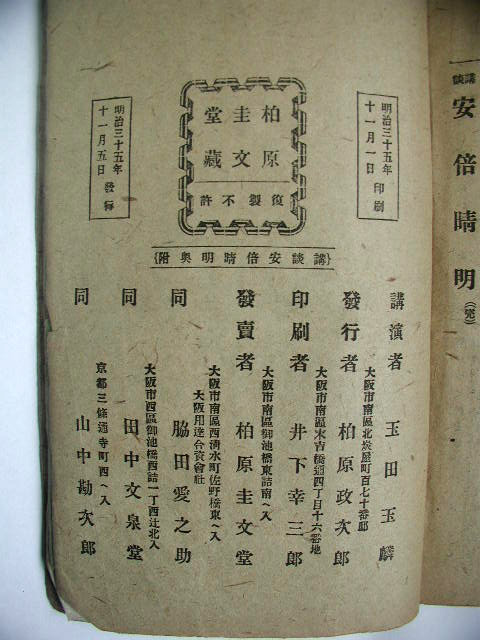 講談
安倍晴明
(完)
明治三十五年
十一月一日 印刷
柏原
圭文
堂藏
復製不許
明治三十五年
十一月五日 發行
{講談安倍晴明奥附}
講演者 玉田玉麟
大阪市南區北炭屋町百七十番邸
發行者 柏原政次郎
大阪市南區末吉橋通四丁目十六番地
印刷者 井下幸三郎
大阪市南區御池橋東詰南ヘ入
發賣者 柏原圭文堂
大阪市南區西清水町佐野橋東ヘ入
大阪用達合資會社
同 脇田愛之助
大阪市西區御池橋西詰一丁西辻北入
同 田中文泉堂
京都三條通寺町西ヘ入
同 山中勘次郎